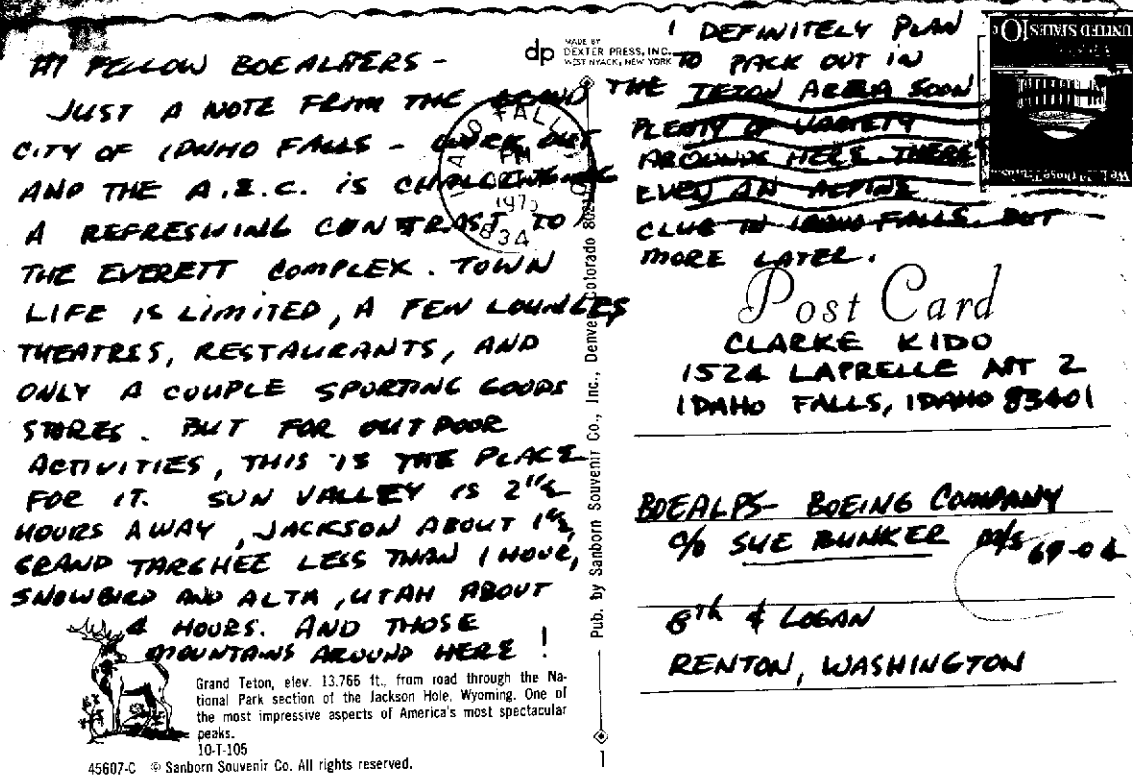 HI FELLOW BOEALPERS -
JUST A NOTE FROM THE GRAND
CITY OF IDAHO FALLS - WORK OUT
AND THE A.E.C. IS CHALLENGING
A REFRESHING CONTRAST TO
THE EVERETT COMPLEX. TOWN
LIFE IS LIMITED, A FEW LOUNGES
THEATRES, RESTAURANTS, AND
ONLY A COUPLE SPORTING GOODS
STORES. BUT FOR OUTDOOR
ACTIVITIES, THIS IS THE PLACE
FOR IT. SUN VALLEY IS 2 1/2
HOURS AWAY, JACKSON ABOUT 1 1/2,
GRAND TARGHEE LESS THAN 1 HOUR,
SNOWBIRD AND ALTA, UTAH ABOUT
4 HOURS. AND THOSE
MOUNTAINS AROUND HERE!
Grand Teton, elev. 13,766 ft., from road through the Na-
tional Park section of the Jackson Hole, Wyoming. One of
the most impressive aspects of America's most spectacular
peaks.
10-T-105
45607-C © Sanborn Souvenir Co. All rights reserved.
dp
MADE BY
DEXTER PRESS, INC.
WEST NYACK, NEW YORK
IDAHO FALLS
PM
197
834
Pub. by Sanborn Souvenir Co., Inc., Denver, Colorado
1
I DEFINITELY PLAN
TO PACK OUT IN
THE TETON AREA SOON
PLENTY OF VARIETY
AROUND HERE. THERE
EVEN AN ALPINE
CLUB IN IDAHO FALLS. BUT
MORE LATER.
UNITED STATES 10c
Post Card
CLARKE KIDO
1524 LAPRELLE APT 2
IDAHO FALLS, IDAHO 83401
BOEALPS- BOEING COMPANY
c/o SUE BUNKER M/S 69-
8th & LOGAN
RENTON, WASHINGTON